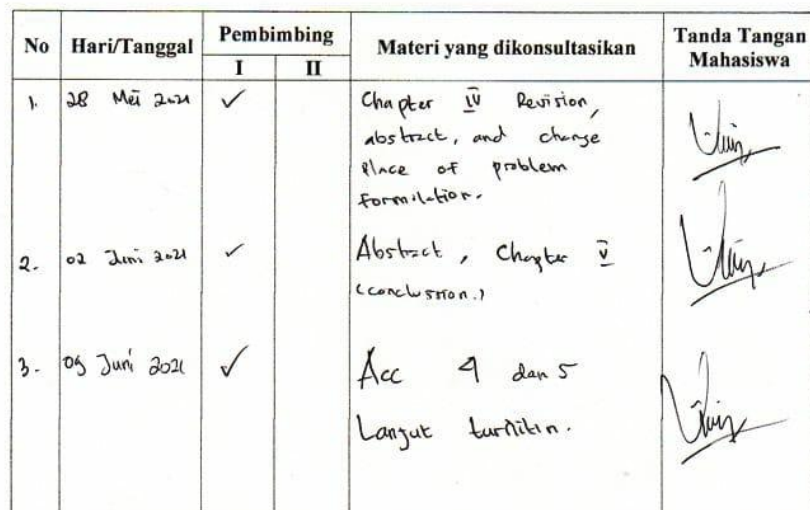 No Hari/Tanggal Pembimbing Materi yang dikonsultasikan Tanda Tangan Mahasiswa
I II
1. 28 Mei 2021 ✓ Chapter IV Revision,
abstract, and change
Place of problem
formulation.
2. 02 Juni 2021 ✓ Abstract, Chapter V
(conclussion.)
3. 09 Juni 2021 ✓ Acc 4 dan 5
Lanjut turnitin.